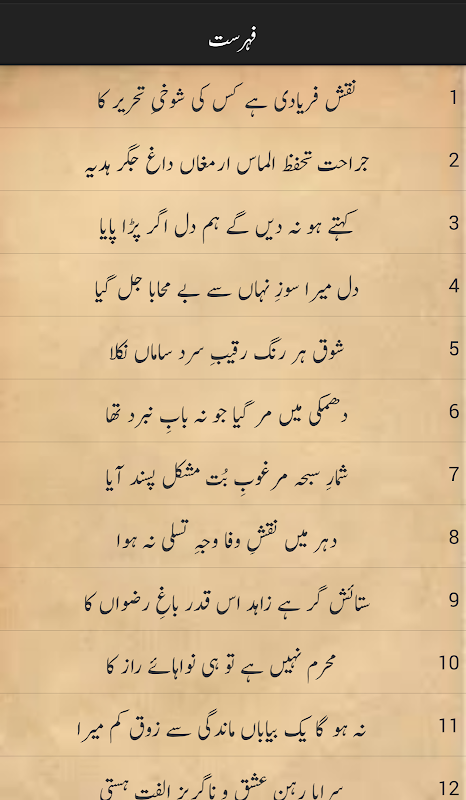 فہرست
1 نقش فریادی ہے کس کی شوخیِ تحریر کا
2 جراحت تحفظ الماس ارمغاں داغ جگر ہدیہ
3 کہتے ہو نہ دیں گے ہم دل اگر پڑا پایا
4 دل میرا سوزِ نہاں سے بے محابا جل گیا
5 شوق ہر رنگ رقیبِ سرد ساماں نکلا
6 دھمکی میں مر گیا جو نہ بابِ نبرد تھا
7 شمارِ سبحہ مرغوبِ بُت مشکل پسند آیا
8 دہر میں نقشِ وفا وجہِ تسلی نہ ہوا
9 ستائش گر ہے زاہد اس قدر باغِ رضواں کا
10 محرم نہیں ہے تو ہی نواہائے راز کا
11 نہ ہو گا یک بیاباں ماندگی سے زوق کم میرا
12 سراپا رہنِ عشق و ناگریز الفت ہستی